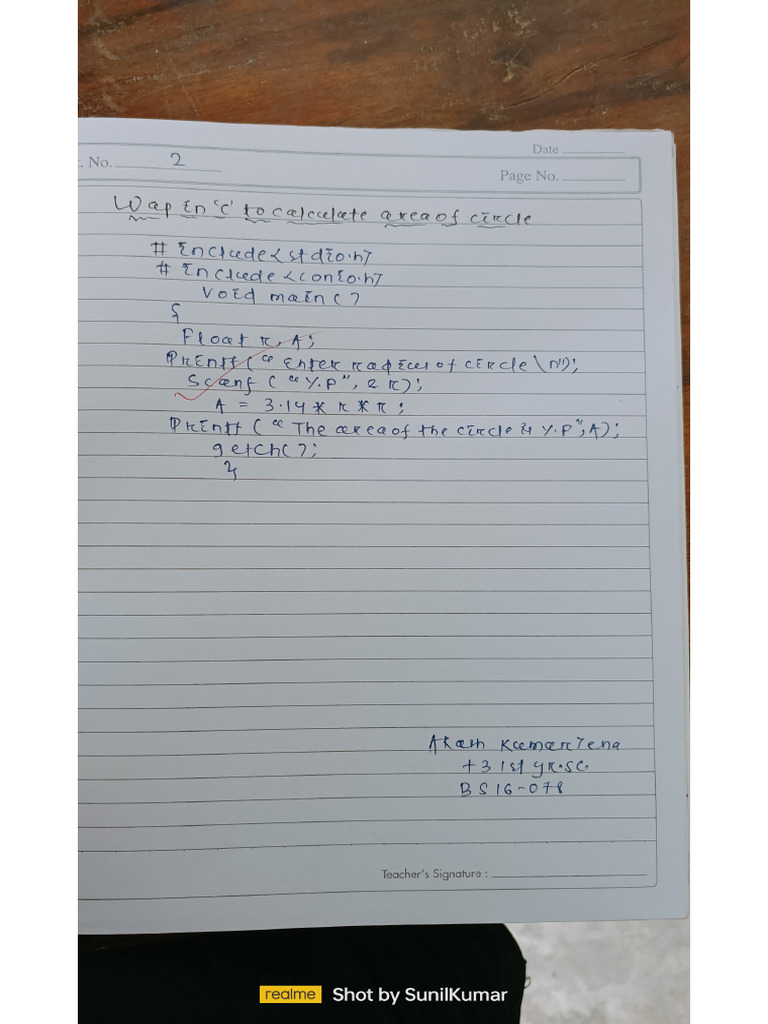 . No. 2
Date
Page No.
Wap in 'C' to calculate area of circle
# include <stdio.h>
# include <conio.h>
void main ( )
{
Float r, A;
Printf ( " Enter radius of circle \n");
Scanf ( " %f ", & r);
A = 3.14 * r * r ;
Printf ( " The area of the circle is %f ", A);
getch( );
}
Akash Kumar Jena
+3 1st yr. sc.
BS16-078
Teacher's Signature :
realme Shot by SunilKumar